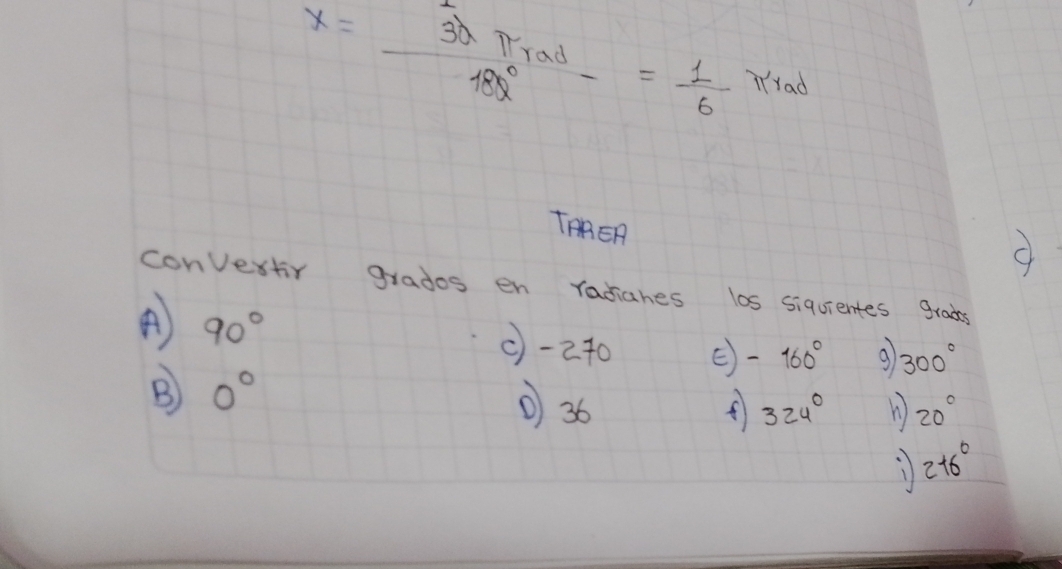 x = 30 πrad / 180° = 1/6 πrad
TAREA
convertir grados en radianes los siquientes grados
A) 90° c) -270 E) - 160° g) 300°
B) 0° D) 36 f) 324° h) 20°
i) 216°
c)